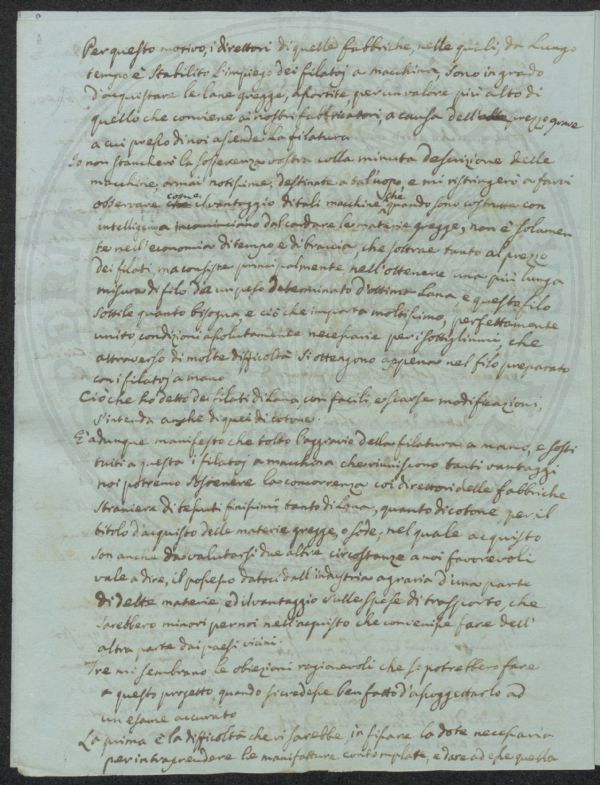 Per questo motivo, i direttori di quelle fabbriche, nelle quali, da lungo
tempo è stabilito l'impiego dei filatoj a macchina, sono in grado
d'acquistare le lane gregge, assortite, per un valore più alto di
quello che conviene ai nostri fabbricatori, a causa dell' prezzo grave
a cui presso di noi ascende la filatura.
Io non stancherò la sofferenza vostra colla minuta descrizione delle
macchine, ormai notissime, destinate a tal uopo, e mi ristringerò a farvi
osservare come il vantaggio di tali macchine quando sono costrutte con
intelligenza incominciano dal cardare le materie gregge, non è solamen
te nell'economia di tempo e di braccia, che sottrae tanto al prezzo
dei filati, ma consiste principalmente nell'ottenere una più lunga
misura di filo da un peso determinato d'ottima lana, e questo filo
sottile quanto bisogna, e ciò che importa moltissimo, perfettamente
unito condizioni assolutamente necessarie per i sottigliumi, che
attraverso di molte difficoltà si ottengono appena nel filo preparato
con i filatoj a mano.
Ciò che ho detto dei filati di lana, con facili, e scarse modificazioni,
s'intenda anche di quei di cotone.
È adunque manifesto che tolto l'aggravio della filatura a mano, e sosti
tuiti a questa i filatoj a macchina che riuniscono tanti vantaggi
noi potremo sostenere la concorrenza coi direttori delle fabbriche
straniere di tessuti finissimi tanto di lana, quanto di cotone per il
titolo d'acquisto delle materie gregge, o sode, nel quale acquisto
son anche da valutarsi due altre circostanze a noi favorevoli
vale a dire, il possesso datoci dall'industria agraria d'una parte
di dette materie, ed il vantaggio sulle spese di trasporto, che
sarebbero minori per noi nell'acquisto che convenisse fare dell'
altra parte dai paesi vicini.
Tre mi sembrano le obiezioni ragionevoli che si potrebbero fare
a questo progetto, quando si credesse ben fatto d'assoggettarlo ad
un esame accurato
La prima è la difficoltà che vi sarebbe in fissare la dote necessaria
per intraprendere le manifatture contemplate, e dare ad esse questa